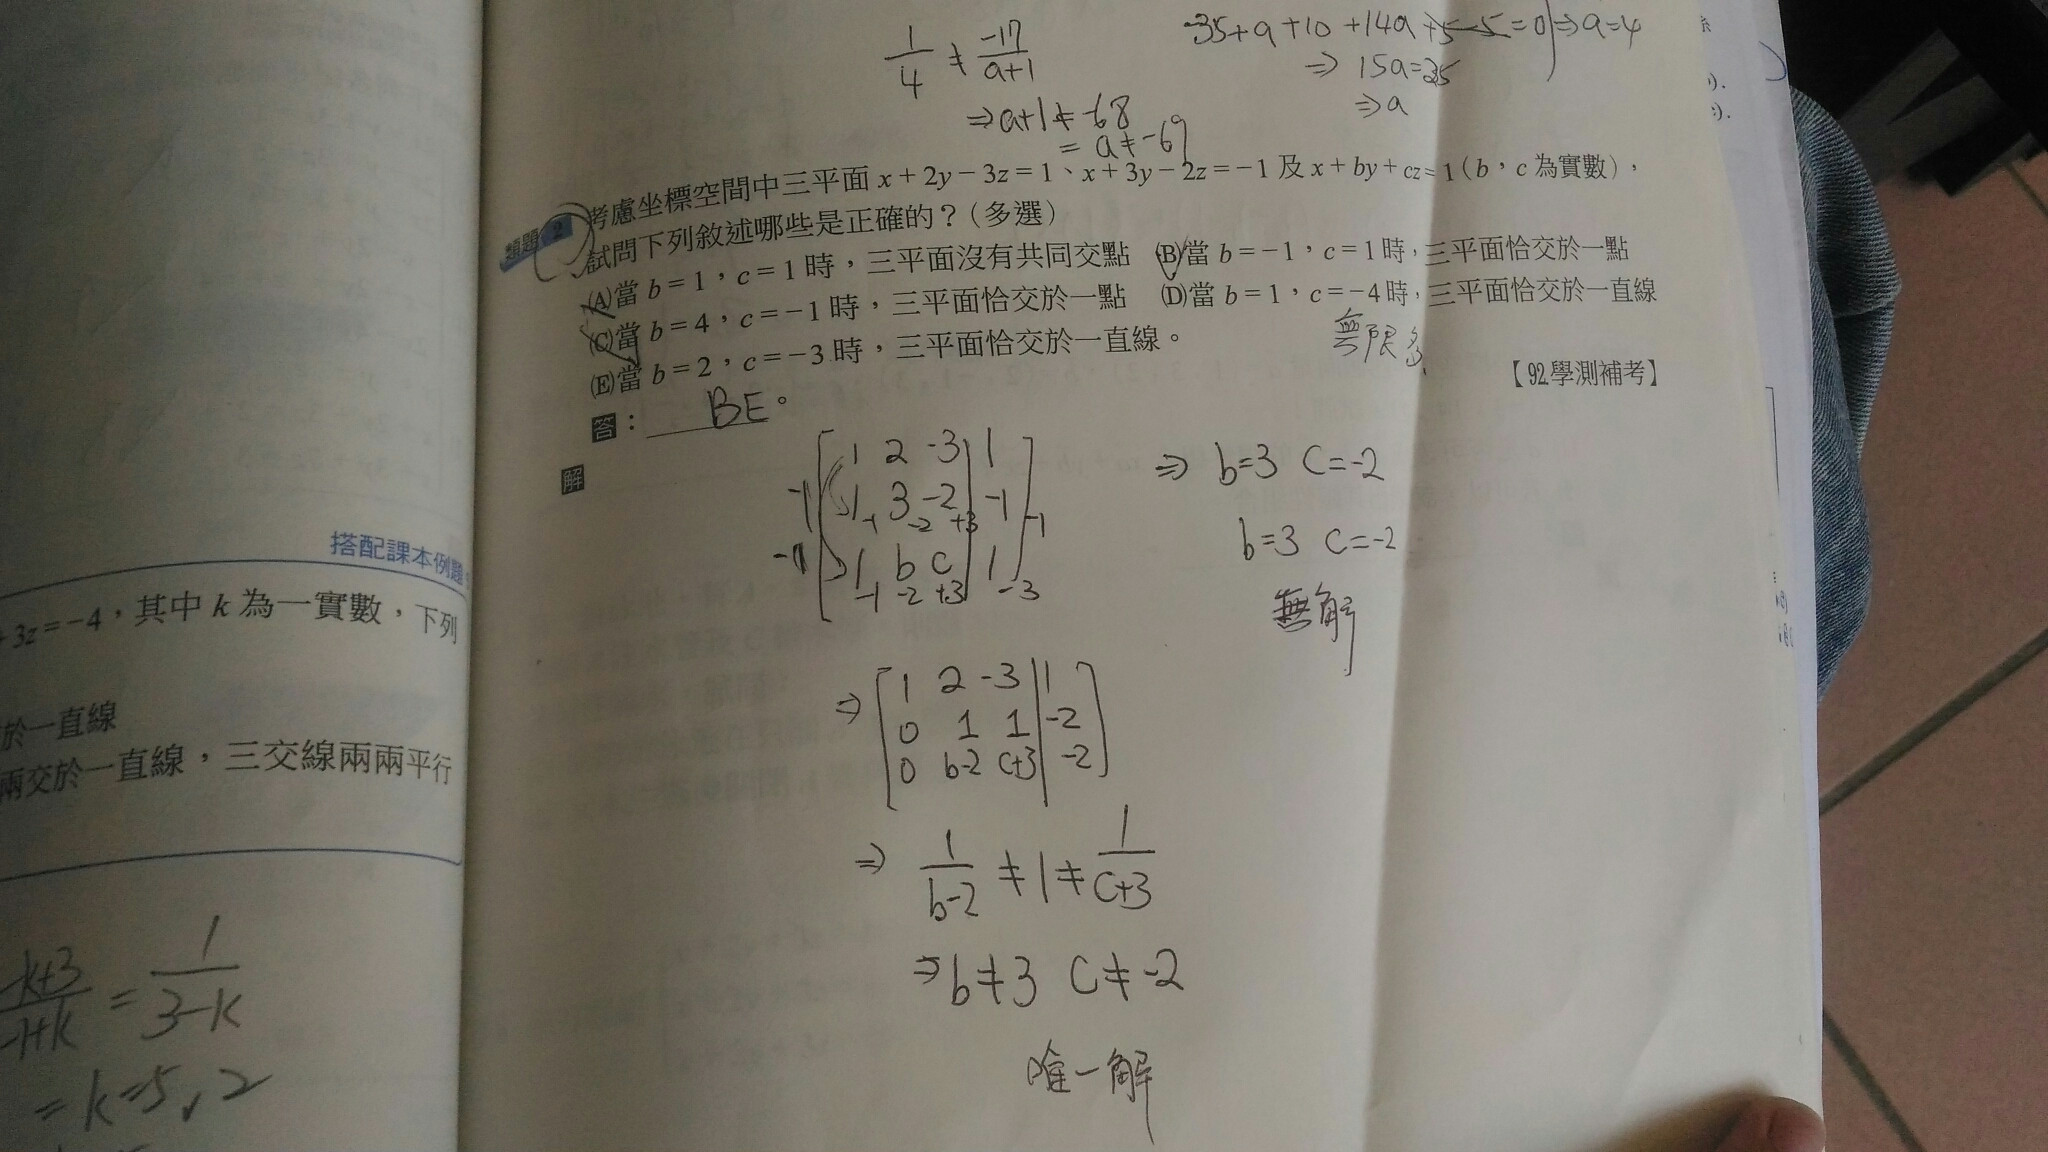 1/4 ≠ -17/(a+1)
⇒ a+1 ≠ -68
= a ≠ -69
-35+a+10+14a+5-5=0 ⇒ a=4
⇒ 15a=35
⇒ a
類題 2 考慮坐標空間中三平面 x+2y-3z=1、x+3y-2z=-1 及 x+by+cz=1(b,c 為實數),
試問下列敘述哪些是正確的?(多選)
(A)當 b=1,c=1 時,三平面沒有共同交點 (B)當 b=-1,c=1 時,三平面恰交於一點
(C)當 b=4,c=-1 時,三平面恰交於一點 (D)當 b=1,c=-4 時,三平面恰交於一直線
無限多
(E)當 b=2,c=-3 時,三平面恰交於一直線。
【92學測補考】
答: BE。
解
-1 -1
1 2 -3 | 1
1 3 -2 | -1
-1 -2 +3 -1
1 b c | 1
-1 -2 +3 -3
⇒ b=3 c=-2
b=3 c=-2
無解
⇒ 1 2 -3 | 1
0 1 1 | -2
0 b-2 c+3 | -2
⇒ 1/(b-2) ≠ 1 ≠ 1/(c+3)
⇒ b≠3 c≠-2
唯一解
搭配課本例題
+3z=-4,其中 k 為一實數,下列
於一直線
兩交於一直線,三交線兩兩平行
= 1/(3-k)
= k=5,2